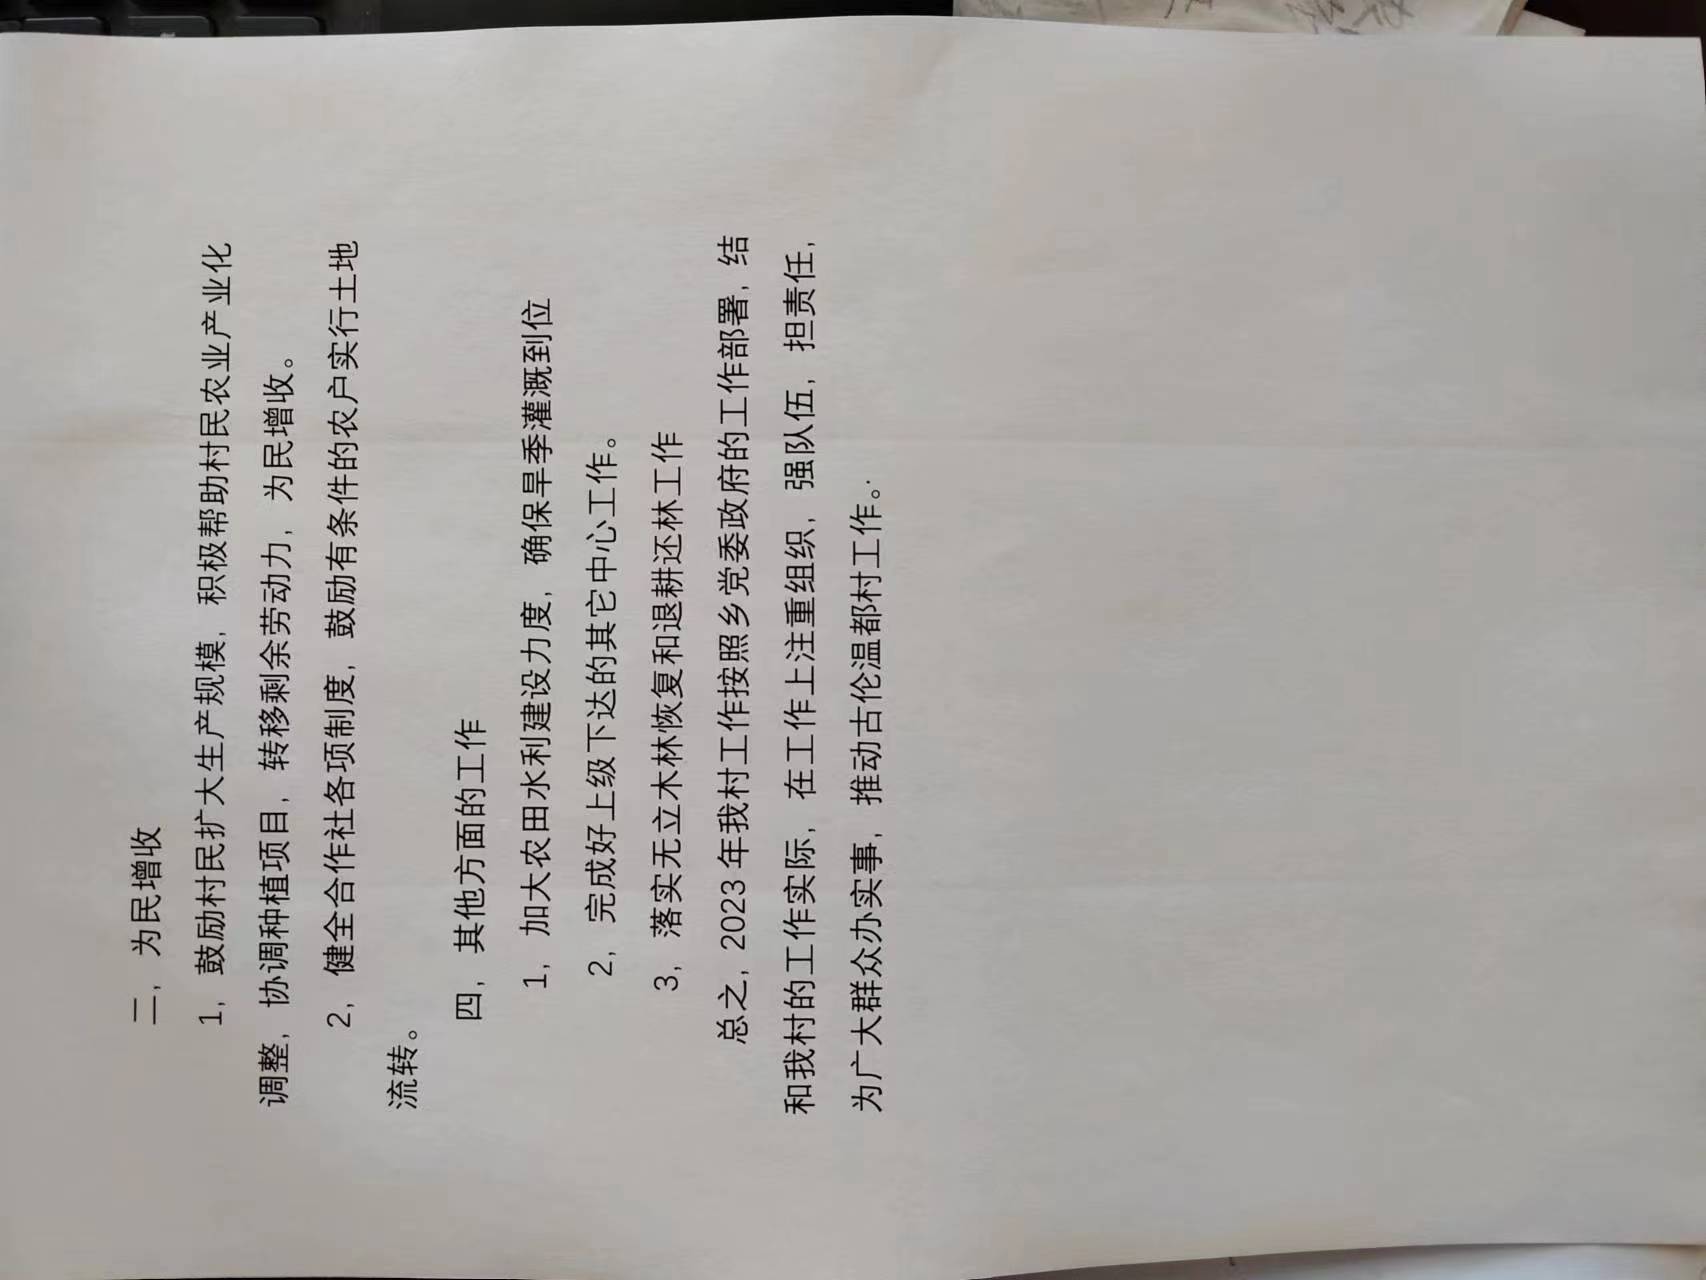 二，为民增收
1，鼓励村民扩大生产规模，积极帮助村民农业产业化
调整，协调种植项目，转移剩余劳动力，为民增收。
2，健全合作社各项制度，鼓励有条件的农户实行土地
流转。
四，其他方面的工作
1，加大农田水利建设力度，确保旱季灌溉到位
2，完成好上级下达的其它中心工作。
3，落实无立木林恢复和退耕还林工作
总之，2023年我村工作按照乡党委政府的工作部署，结
和我村的工作实际，在工作上注重组织，强队伍，担责任，
为广大群众办实事，推动古伦温都村工作。